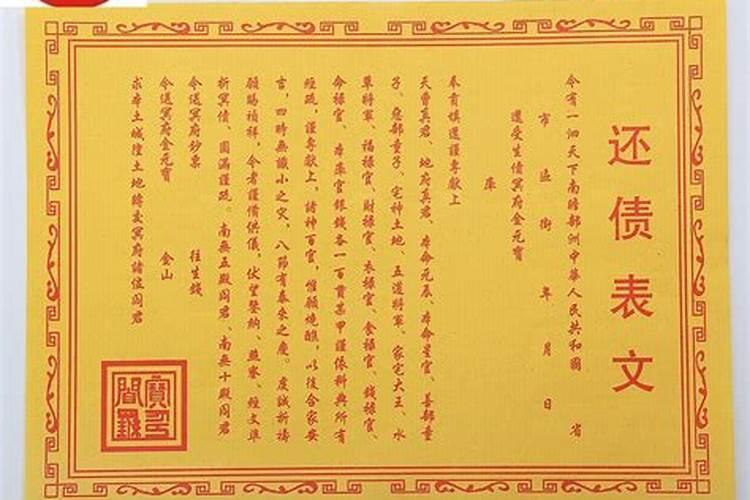 还债表文
今有一泗天下南瞻部洲中華人民共和國 省
市 區 街 年 月 日
還受生債冥府金元寶
庫
奉育填還謹專獻上
天曹真君、地府真君、本命元辰、本命星官、善部童
子、惡部童子、宅神土地、五道將軍、家宅大王、水
草將軍、福禄官、財禄官、衣禄官、食禄官、錢禄官、
命禄官、本庫官銀錢各一百貫某甲謹依科典所有
經疏，謹專獻上，諸神百官，惟願燒醮，以後合家安
吉，四時無讖小之灾，八節有泰來之慶。虔誠祈禱
願賜禎祥，令者謹備供儀，伏望鑒納、 經文準
折冥債、圓滿謹疏。南無五殿閻君、南無十殿閻君
今送冥府鈔票 往生錢
今送冥府金元寶 金山
求本土城隍土地轉交冥府諸位閻君